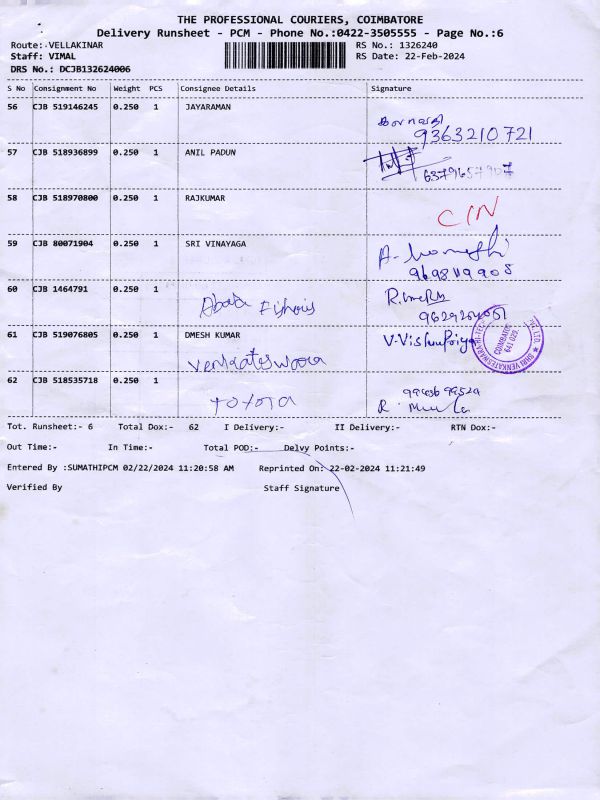 THE PROFESSIONAL COURIERS, COIMBATORE
Delivery Runsheet - PCM - Phone No.:0422-3505555 - Page No.:6
Route: VELLAKINAR RS No.: 1326240
Staff: VIMAL RS Date: 22-Feb-2024
DRS No.: DCJB132624006
S No Consignment No Weight PCS Consignee Details Signature
56 CJB 519146245 0.250 1 JAYARAMAN
9363210721
57 CJB 518936899 0.250 1 ANIL PADUN
6379657907
58 CJB 518970800 0.250 1 RAJKUMAR
CIN
59 CJB 80071904 0.250 1 SRI VINAYAGA
60 CJB 1464791 0.250 1
61 CJB 519076805 0.250 1 DMESH KUMAR
Venkateswara V.VishnuPriya
62 CJB 518535718 0.250 1
TOYOTA
Tot. Runsheet:- 6 Total Dox:- 62 I Delivery:- II Delivery:- RTN Dox:-
Out Time:- In Time:- Total POD:- Delvy Points:-
Entered By :SUMATHIPCM 02/22/2024 11:20:58 AM Reprinted On: 22-02-2024 11:21:49
Verified By Staff Signature